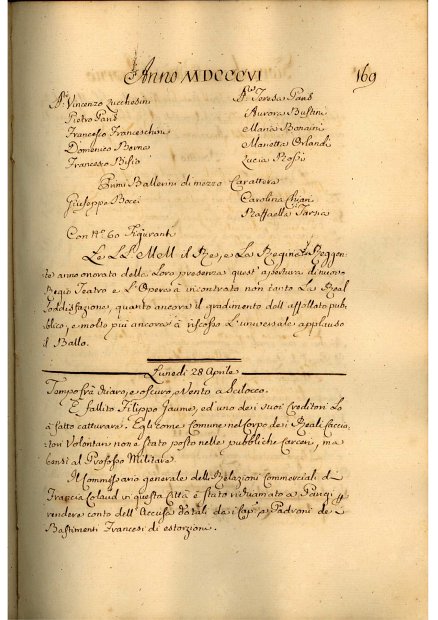 Anno MDCCCVI 169
Sr. Vincenzo Zucchesini
Pietro Gans
Francesco Franceschini
Domenico Berna
Francesco
Sra. Teresa Gans
Aurora Bustini
Maria Bonaini
Marietta Orlandi
Lucia Bossi
Primi Ballerini di mezzo Carattere
Giuseppe Bocci
Carolina Chiari
Raffaella Farsia
Con No. 60 Figuranti
Le LL. MM. il Re, e La Regina Reggen-
te anno onorato della Loro presenza quest'apertura di nuovo
Regio Teatro e L'Opera à incontrato non tanto La Real
Soddisfazione, quanto ancora il gradimento dell'affollato pub-
blico, e molto più ancora à riscosso L'universale applauso
il Ballo.
Lunedì 28 Aprile
Tempo frà chiaro, e oscuro, e Vento a Scilocco.
È fallito Filippo Jaume, ed uno de i suoi Creditori Lo
à fatto catturare. Egli come Comune nel Corpo dei Reali Caccia-
tori Volontari non è stato posto nelle pubbliche Carceri, ma
bensì al Profosso Militare.
Il Commissario generale delle Relazioni Commerciali di
Francia in questa Città è stato richiamato a Parigi p
rendere conto dell'Accuse datali da i Cap. e Padroni de
Bastimenti Francesi di estorzioni.